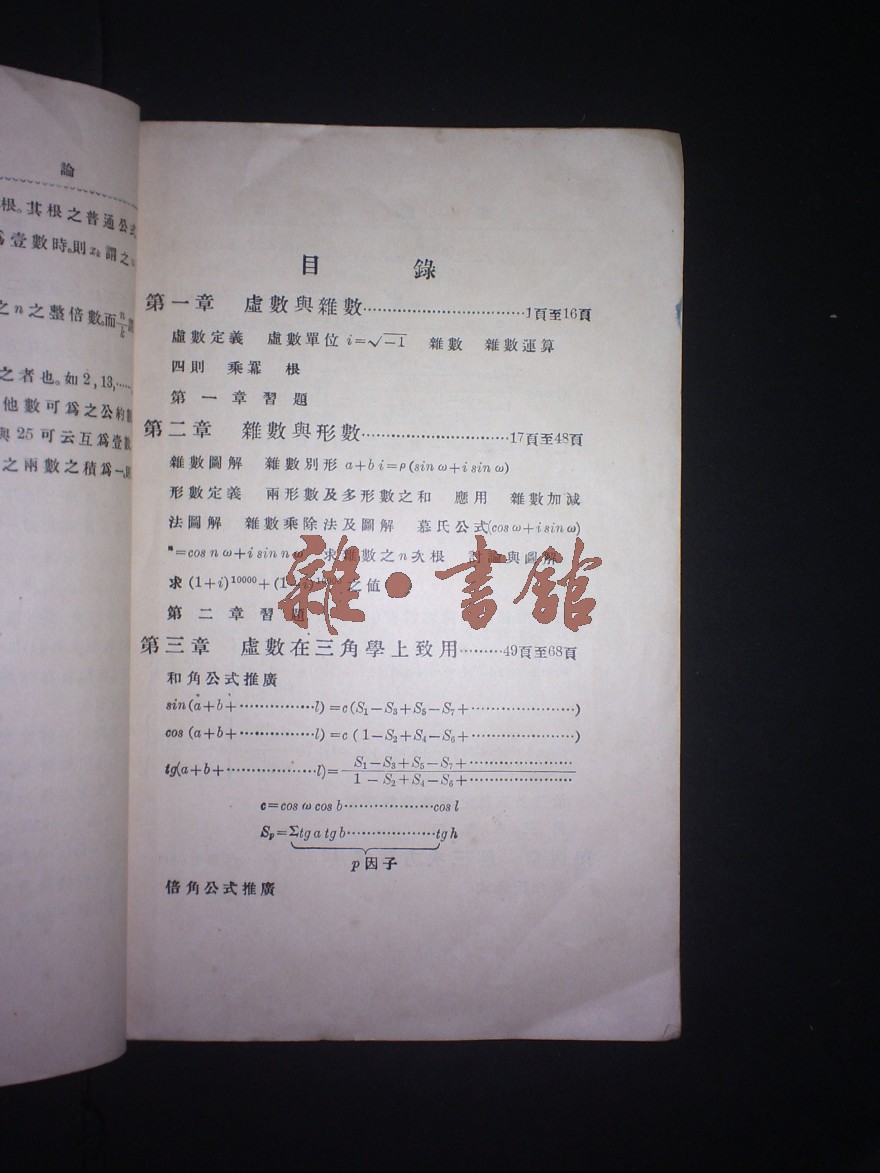 論
根。其根之普通公式
爲壹數時。則 x 謂之
之 n 之整倍數。而 n/k
之者也。如 2, 13, ……
他數可爲之公約數
與 25 可云互爲壹數
之兩數之積爲一
目 錄
第一章 虛數與雜數……………………………1頁至16頁
虛數定義 虛數單位 i=√−1 雜數 雜數運算
四則 乘冪 根
第一章習題
第二章 雜數與形數…………………………17頁至48頁
雜數圖解 雜數別形 a+bi=ρ(sin ω+i sin ω)
形數定義 兩形數及多形數之和 應用 雜數加減
法圖解 雜數乘除法及圖解 慕氏公式(cos ω+i sin ω)
ⁿ=cos n ω+i sin n ω 求雜數之n次根 討論與圖解
求 (1+i)¹⁰⁰⁰⁰+(1−i) 之値
第二章習題
第三章 虛數在三角學上致用………49頁至68頁
和角公式推廣
sin(a+b+……………l)=c(S₁−S₃+S₅−S₇+…………………)
cos (a+b+……………l)=c(1−S₂+S₄−S₆+…………………)
tg(a+b+………………l)= S₁−S₃+S₅−S₇+…………………
1−S₂+S₄−S₆+…………………
c=cos ω cos b………………cos l
Sₚ=Σtg a tg b………………tg h
p因子
倍角公式推廣
雜·書館